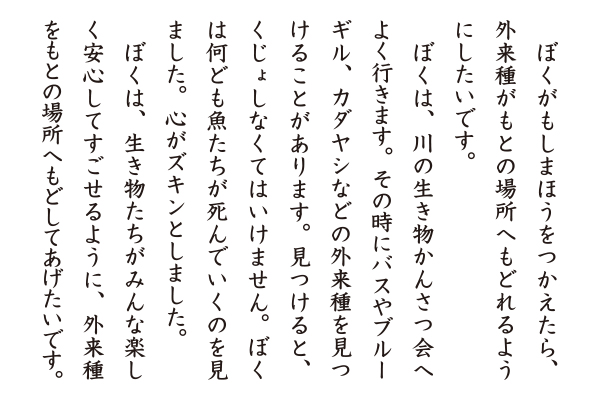 ぼくがもしまほうをつかえたら、
外来種がもとの場所へもどれるよう
にしたいです。
　ぼくは、川の生き物かんさつ会へ
よく行きます。その時にバスやブルー
ギル、カダヤシなどの外来種を見つ
けることがあります。見つけると、
くじょしなくてはいけません。ぼく
は何ども魚たちが死んでいくのを見
ました。心がズキンとしました。
　ぼくは、生き物たちがみんな楽し
く安心してすごせるように、外来種
をもとの場所へもどしてあげたいです。